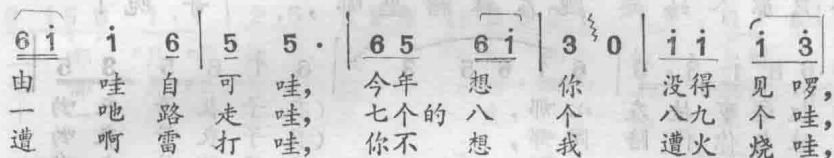 6 i i 6 | 5 5 · | 6 5 6 i | 3 0 | i i i 3
由 哇 自 可 哇, 今年 想 你 没得 见 啰,
一 吔 路 走 哇, 七个的 八 个 八九 个 哇,
遭 啊 雷 打 哇, 你不 想 我 遭火 烧 哇,